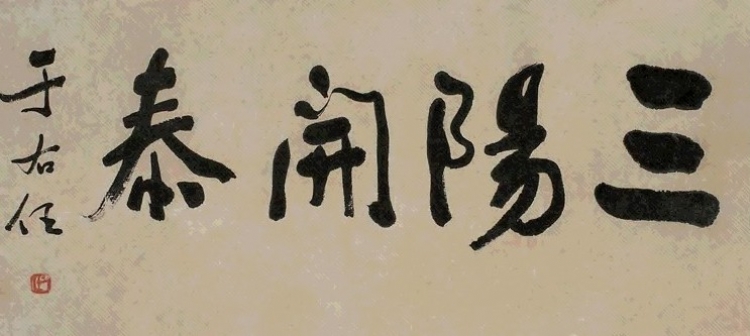 三陽開泰
于右任